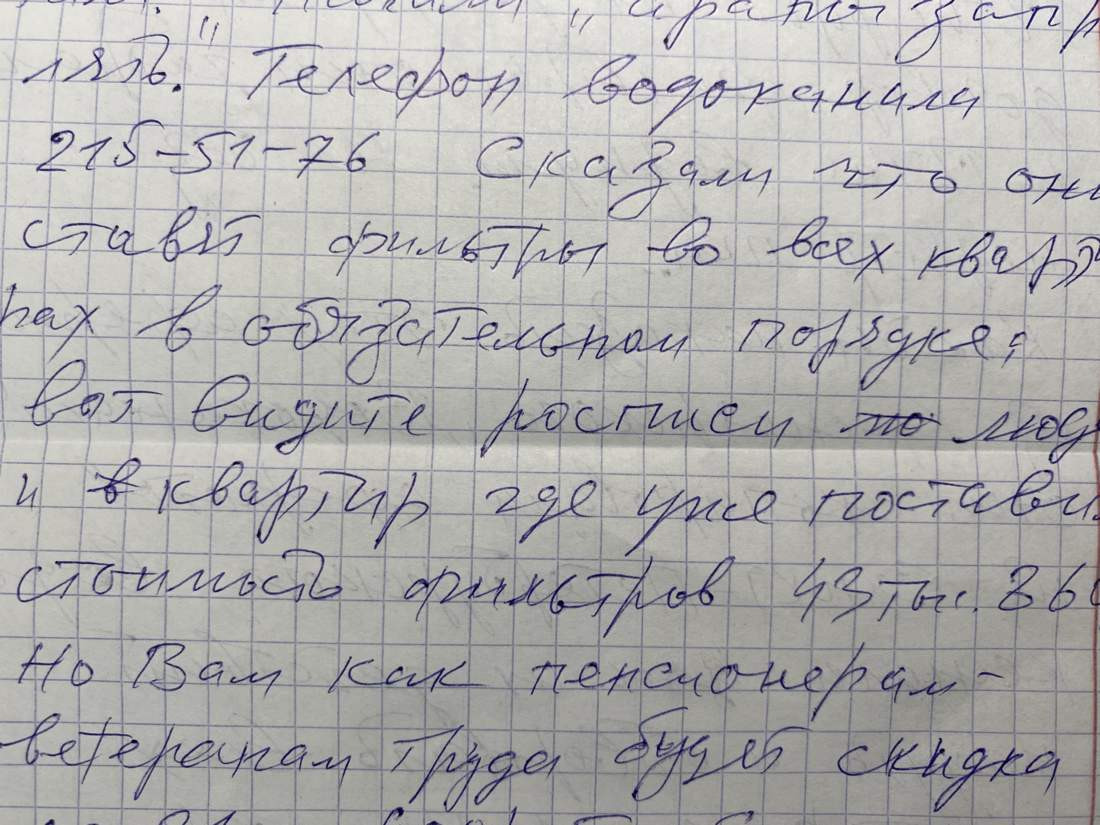 лять." Телефон водоканала
215-51-76 Сказали что они
ставят фильтры во всех кварт
рах в обязательном порядке;
вот видите росписи люд
и в квартир где уже постави
стоимость фильтров 43 тыс. 860
Но Вам как пенсионерам-
ветеранам труда будет скидка